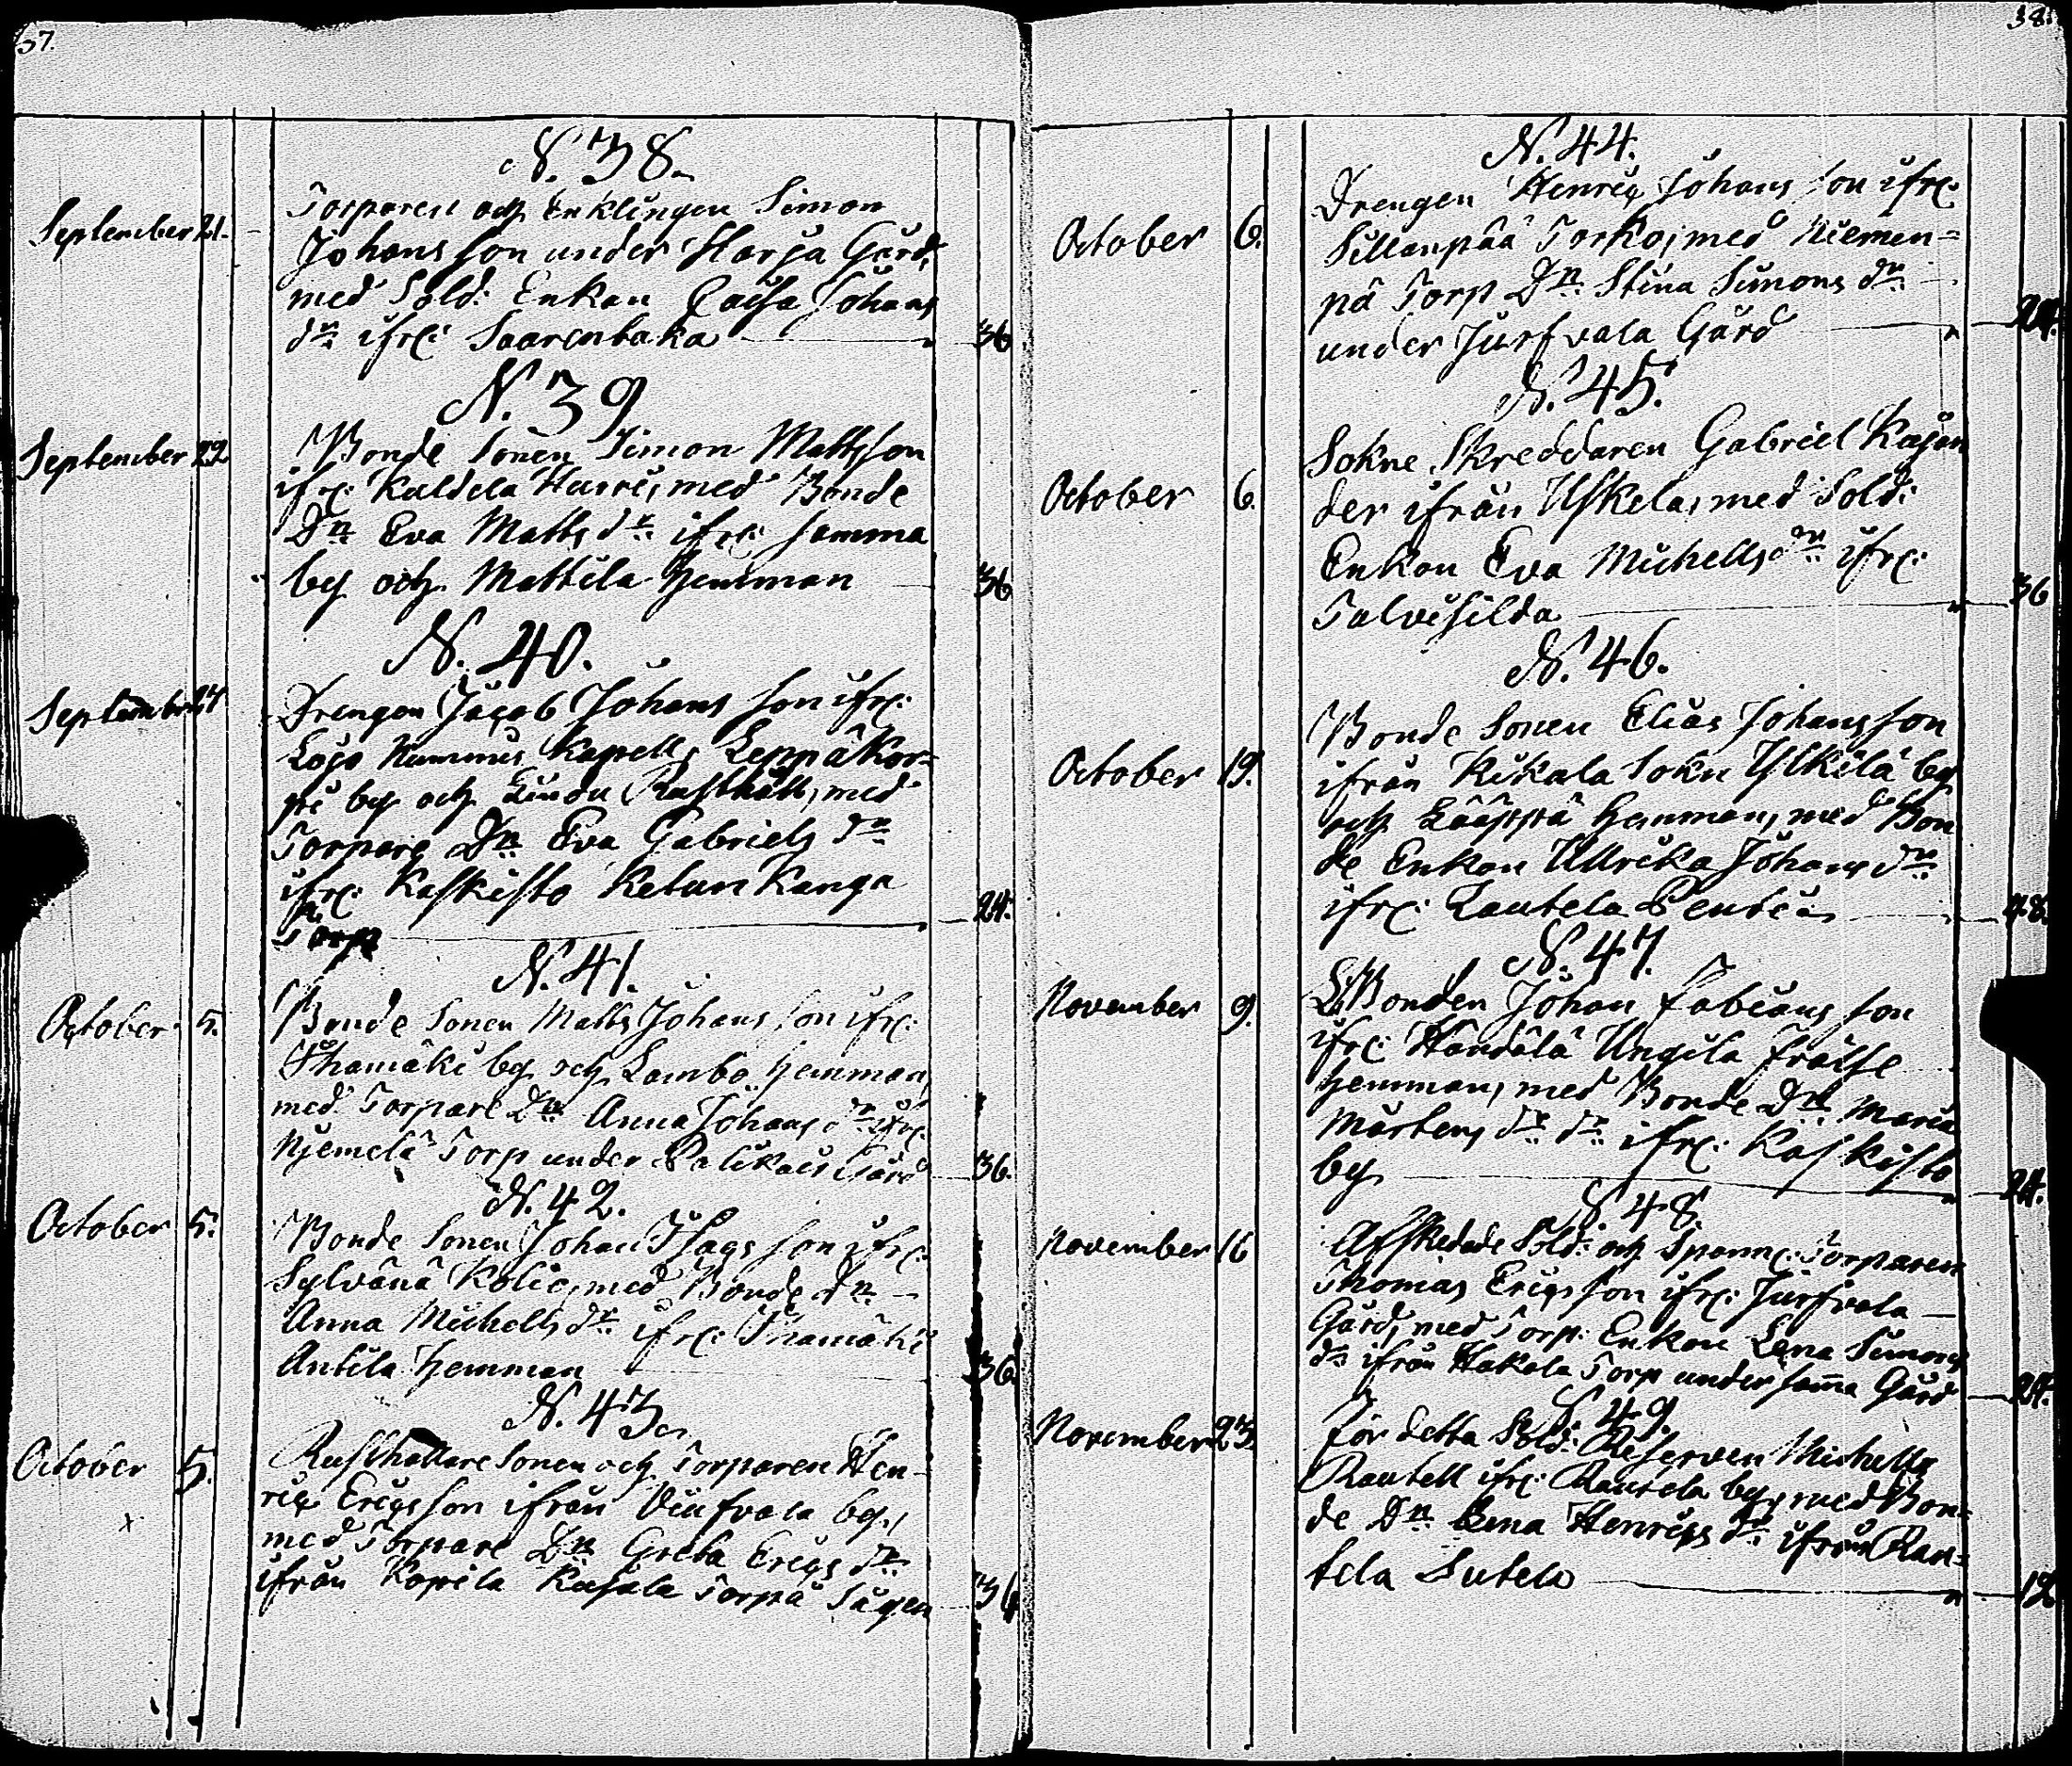 37.
N. 38.
September 21.
Torparen och Enklingen Simon
Johans son under Harja Gård,
med Sold: Enkan Caisa Johans
dr ifr: Saarentaka 36
N. 39
September 22
Bonde Sonen Simon Mattsson
ifr: Kuldela Harri, med Bonde
Dr Eva Matts dr ifr: samma
by och Mattila hemman 36
N. 40.
September 27
Drengen Jacob Johans son ifr:
Lojo Nummis Kapells Leppäkor=
pi by och Rusthåll, med
Torpare Dr Eva Gabriels dr
ifr: Kaskisto Ketun Kanga
Torp 24.
N. 41.
October 5.
Bonde Sonen Matts Johans son ifr:
by och Lambo hemman,
med Torpare Dr Anna Johans dr ifr:
Njemelä Torp under Gård 36.
N. 42.
October 5.
Bonde Sonen Johan Isacs son ifr:
Sylvänä Kolio, med Bonde dr
Anna Michells dr ifr:
Antila hemman 36
N. 43.
October 5.
Rusthållare Sonen och Torparen Hen=
riq Ericsson ifrån by,
med Torpare Dr Greta Erics dr
ifrån Kopila Torpå Sågen 36
38.
N. 44.
October 6.
Drengen Henriq Johans son ifr:
Sillanpää Torko, med Niemen=
pä Torp Dr Stina Simons dr
under Jurfvala Gård 24.
N. 45.
October 6.
Sokne Skreddaren Gabriel Kajan
der ifrån Uskela, med Sold:
Enkan Eva Michells dr ifr:
Talvisilda 36
N. 46.
October 19.
Bonde Sonen Elias Johansson
ifrån Kikala Sokn Ylkilä by
och Lääppä hemman, med Bon
de Enkan Ullrika Johans dr
ifr: Rautela Penttis 48.
N. 47.
November 9.
Bonden Johan Fabians son
ifr: Händälä Ungila frälse
hemman, med Bonde Dr Maria
Mårtens dr dr ifr: Kaskisto
by 24.
N. 48.
November 16
Afskedade Sold: och Torparen
Thomas Ericsson ifr: Jurfvala
Gård, med Torp: Enkan Lena Simons
dr ifrån Hakala Torp under sama Gård 24.
N. 49.
November 23.
För detta Sold: Reserven Michell
Rautell ifr: Rautela by, med Bon=
de Dr Lena Henrics dr ifrån Rau=
tela Sutela 12